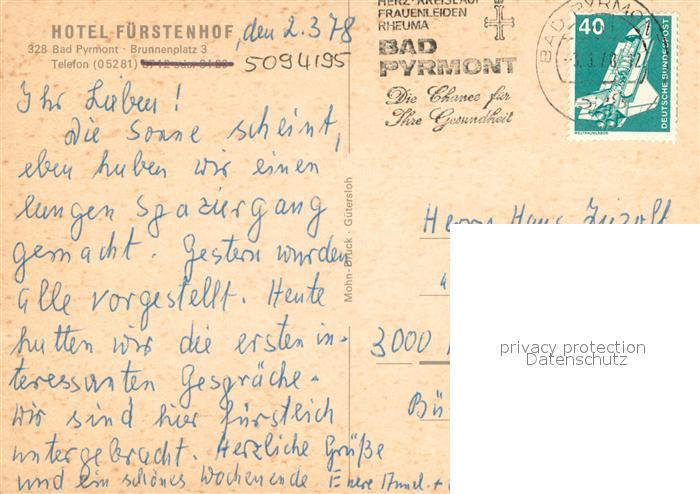 HOTEL FÜRSTENHOF, den 2.3.78
328 Bad Pyrmont · Brunnenplatz 3
Telefon (05281)
5094195
HERZ-KREISLAUF
FRAUENLEIDEN
RHEUMA
BAD
PYRMONT
Die Chance für
Ihre Gesundheit
BAD PYRMONT
40
DEUTSCHE BUNDESPOST
WELTRAUMLABOR
Ihr Lieben!
Die Sonne scheint,
eben haben wir einen
langen Spaziergang
gemacht. Gestern wurden
alle vorgestellt. Heute
hatten wir die ersten in-
teressanten Gespräche.
Wir sind hier fürstlich
untergebracht. Herzliche Grüße
und ein schönes Wochenende Euere
Mohn-Druck · Gütersloh
Herrn Hans
3000
privacy protection
Datenschutz